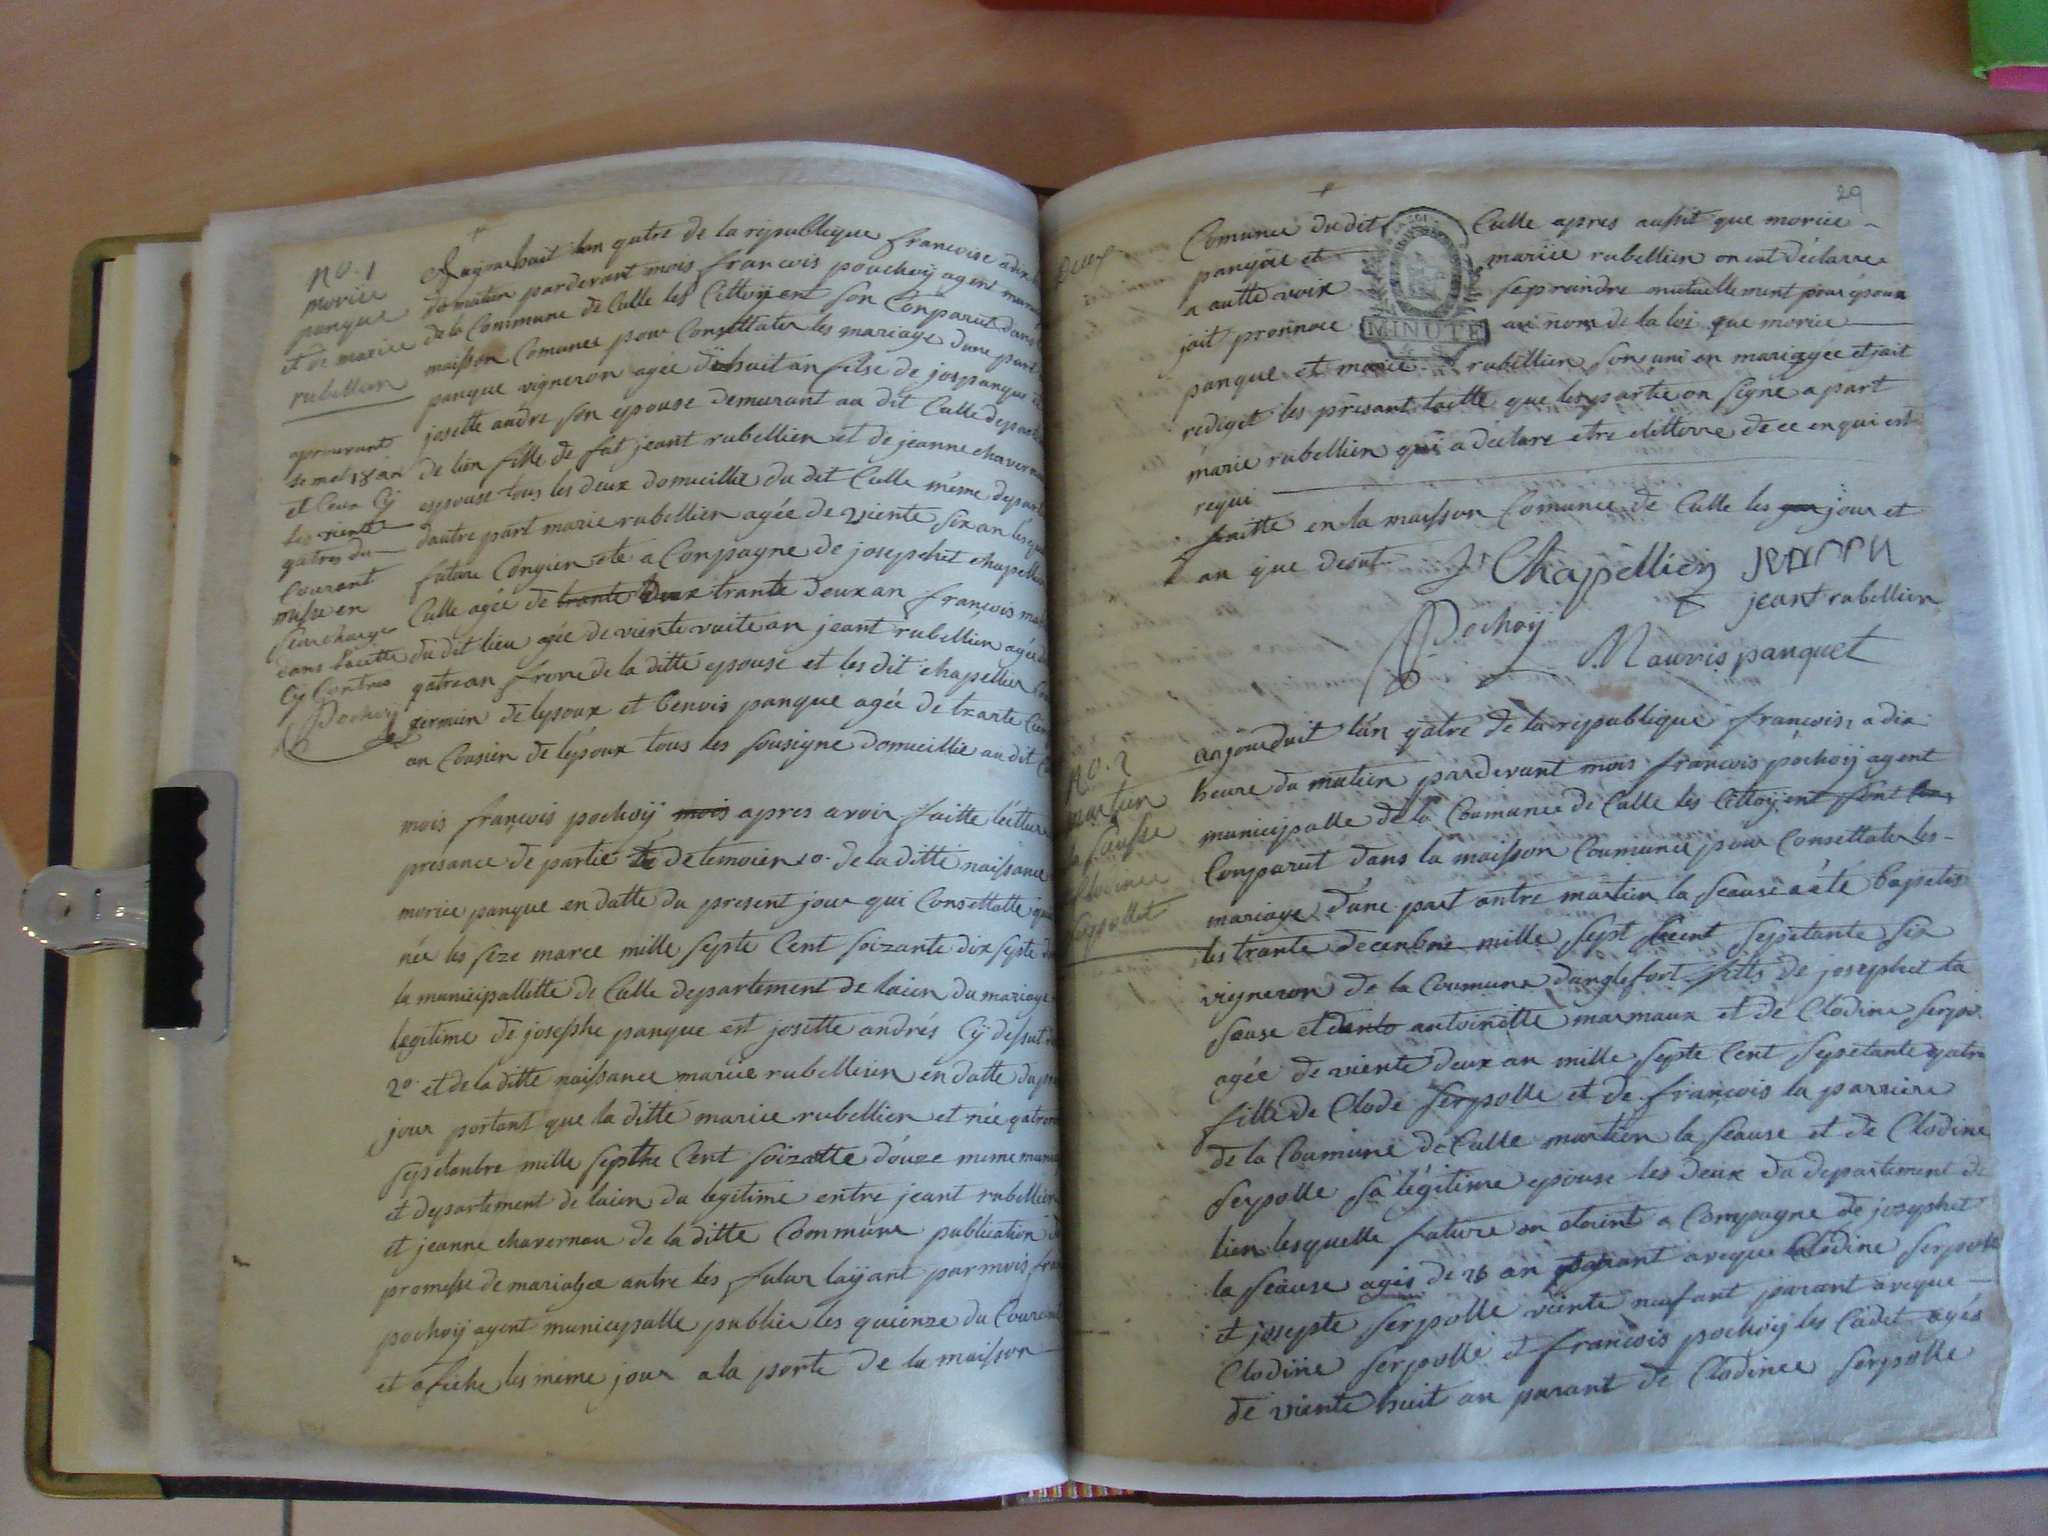 No. 1
morice
panque
et de marice
rubellien
aprouvant
le mot 18 an
et Ceux Cÿ
les viente
qatres du
Courant
dans lacette
Cÿ Contres
Pochoÿ
huit lan qatre de la republique francoise a dix
du matin pardevant mois francois pochoÿ agent
de la Commune de Culle les Cittoÿent son Conparut dans
maisson Comunee pour Consettater les mariage dune part
panque vigneron agée dishuit an filse de jos panque
josette andre son epouse demurant au dit Culle depart
de lien fille de fut jeant rubellien et de jeanne chavern
espouse tous les deux domicillie du dit Culle même depart
dautre part marie rubellien agée de viente six an les
future Conjien ete a Conpagne de josephet chapellien
Culle agée de trante deux trante deux an francois
du dit lieu agée de viente vuite an jeant rubellien agée
qatre an frerre de la ditte epouse et les dit chapellien
germien de lepoux et benois panque agée de trante
an Cousien de lépoux tous les sousigne domicillie au dit
mois françois pochoÿ mois apres avoir faitte lécttur
presance de partie et de temoien 1o. de la ditte naissance
morice panque en datte du present jour qui Consettatte
née les seze marce mille septe Cent soizante dix septe
la municipallette de Culle departement de laien du mariage
legitime de josephe panque est josette andrés Cÿ dessut
2o. et de la ditte naissance marice rubellien en datte du
jour portant que la ditte marice rubellien et née
septanbre mille septhe Cent soizatte douze meme
et departement de laien du legitime entre jeant rubellien
et jeanne chavernon de la ditte Commune publication
promesse de mariagee antre les futur laÿant par mois
pochoÿ agent municipalle publier les quienze du Courent
et afiche les même jour a la porte de la maisson
29
Comunee du dit Culle apres aussit que morice
panque et mariee rubellien on eut déclaree
a autte voix se praindre mutuellement pour epoux
jait pronnoce au nom de la loi que morice
MINUTE
panque et marie rubellien son uni en mariagée et jait
rediget les présant laitte que les partie on signe apart
marie rubellien qui a déclare etre elitterre de ce enqui est
requi
faitte en la maisson Comunee de Culle les jour et
an que desut
J Chapellien
jeant rubellien
Pochoÿ
Mauris panquet
No. 2
martien
la Seausse
Clodinee
Serpollet
aujourduit lan qatre de la republique francois, a dix
heure du matien pardevant mois francois pochoÿ agent
municipalle de la Coumunee de Culle les Cittoÿent sont
Conparut dans la maisson Coumunee pour Consettater les
mariage dune part antre martien la Seause a été baptis
les trante decenbre mille sept Cent septante six
vigneron de la Coumune danglefort fills de josephet la
sause et antoinette marmaux et de Clodine serpo
agée de viente deux an mille septe Cent septante qatre
fille de Clode serpolle et de françois la parriere
de la Coumune de Culle martien la Seause et de Clodine
serpolle sa légitime epouse les deux du departement de
lien lesquelle future on etaint a Compagne de josephet
la Seause agés de 26 an parant aveque Clodine serpolle
et josepte serpolle viente neuf ant parant aveque
Clodine serpolle et francois pochoÿ les Cadet agés
de viente huit an parant de Clodinee serpolle